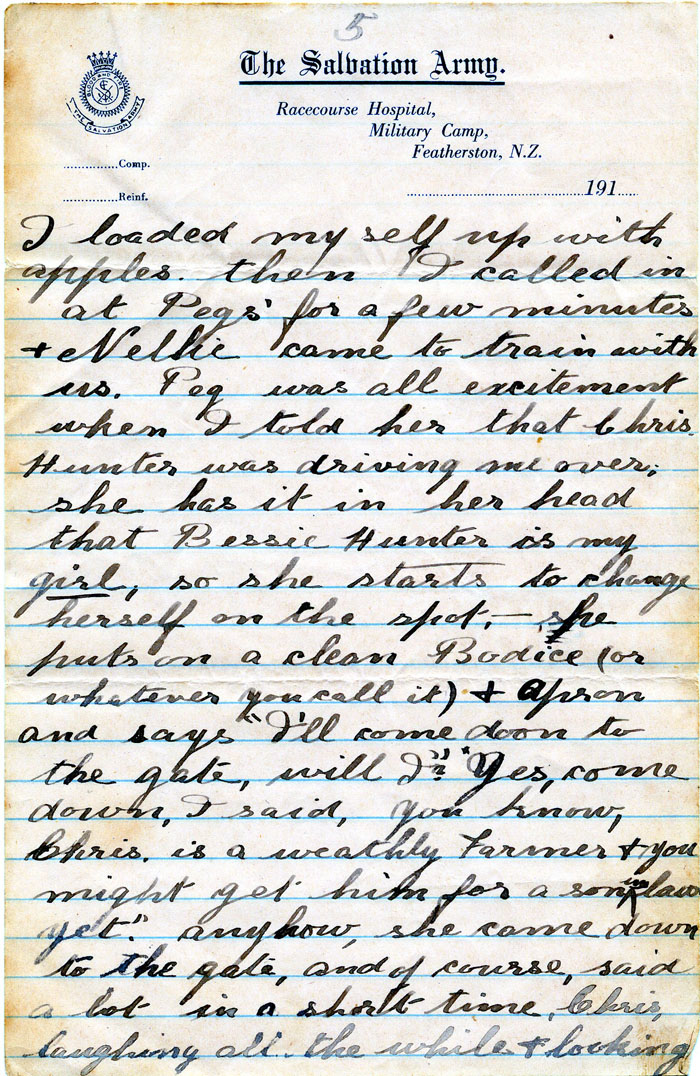 5
The Salvation Army.
BLOOD AND FIRE
THE SALVATION ARMY
Racecourse Hospital,
Military Camp,
Featherston, N.Z.
Comp.
Reinf.
191
I loaded my self up with
apples. then I called in
at Pegs' for a few minutes
+ Nellie came to train with
us. Peg was all excitement
when I told her that Chris
Hunter was driving me over;
she has it in her head
that Bessie Hunter is my
girl, so she starts to change
herself on the spot, — she
puts on a clean Bodice (or
whatever you call it) + Apron
and says "I'll come doon to
the gate, will I?" "Yes, come
down, I said, you know,
Chris. is a weathly Farmer + you
might get him for a son in law
yet." anyhow, she came down
to the gate, and of course, said
a lot in a short time, Chris,
laughing all the while + looking